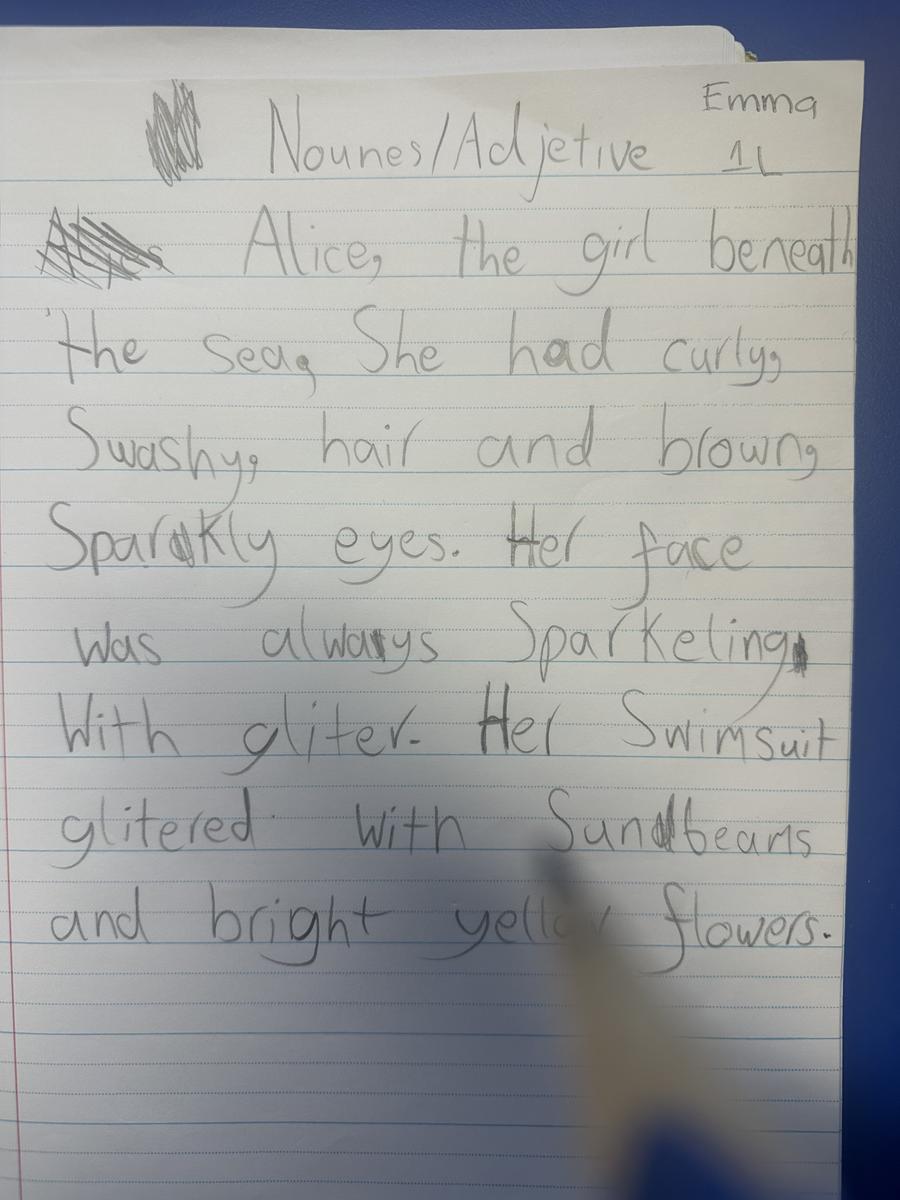 Emma
Nounes/Adjetive 1L
Alice, the girl beneath
the sea, She had curly,
Swashy, hair and brown,
Sparkly eyes. Her face
was always Sparkeling,
With gliter. Her Swimsuit
glitered with Sunbeams
and bright yellow flowers.